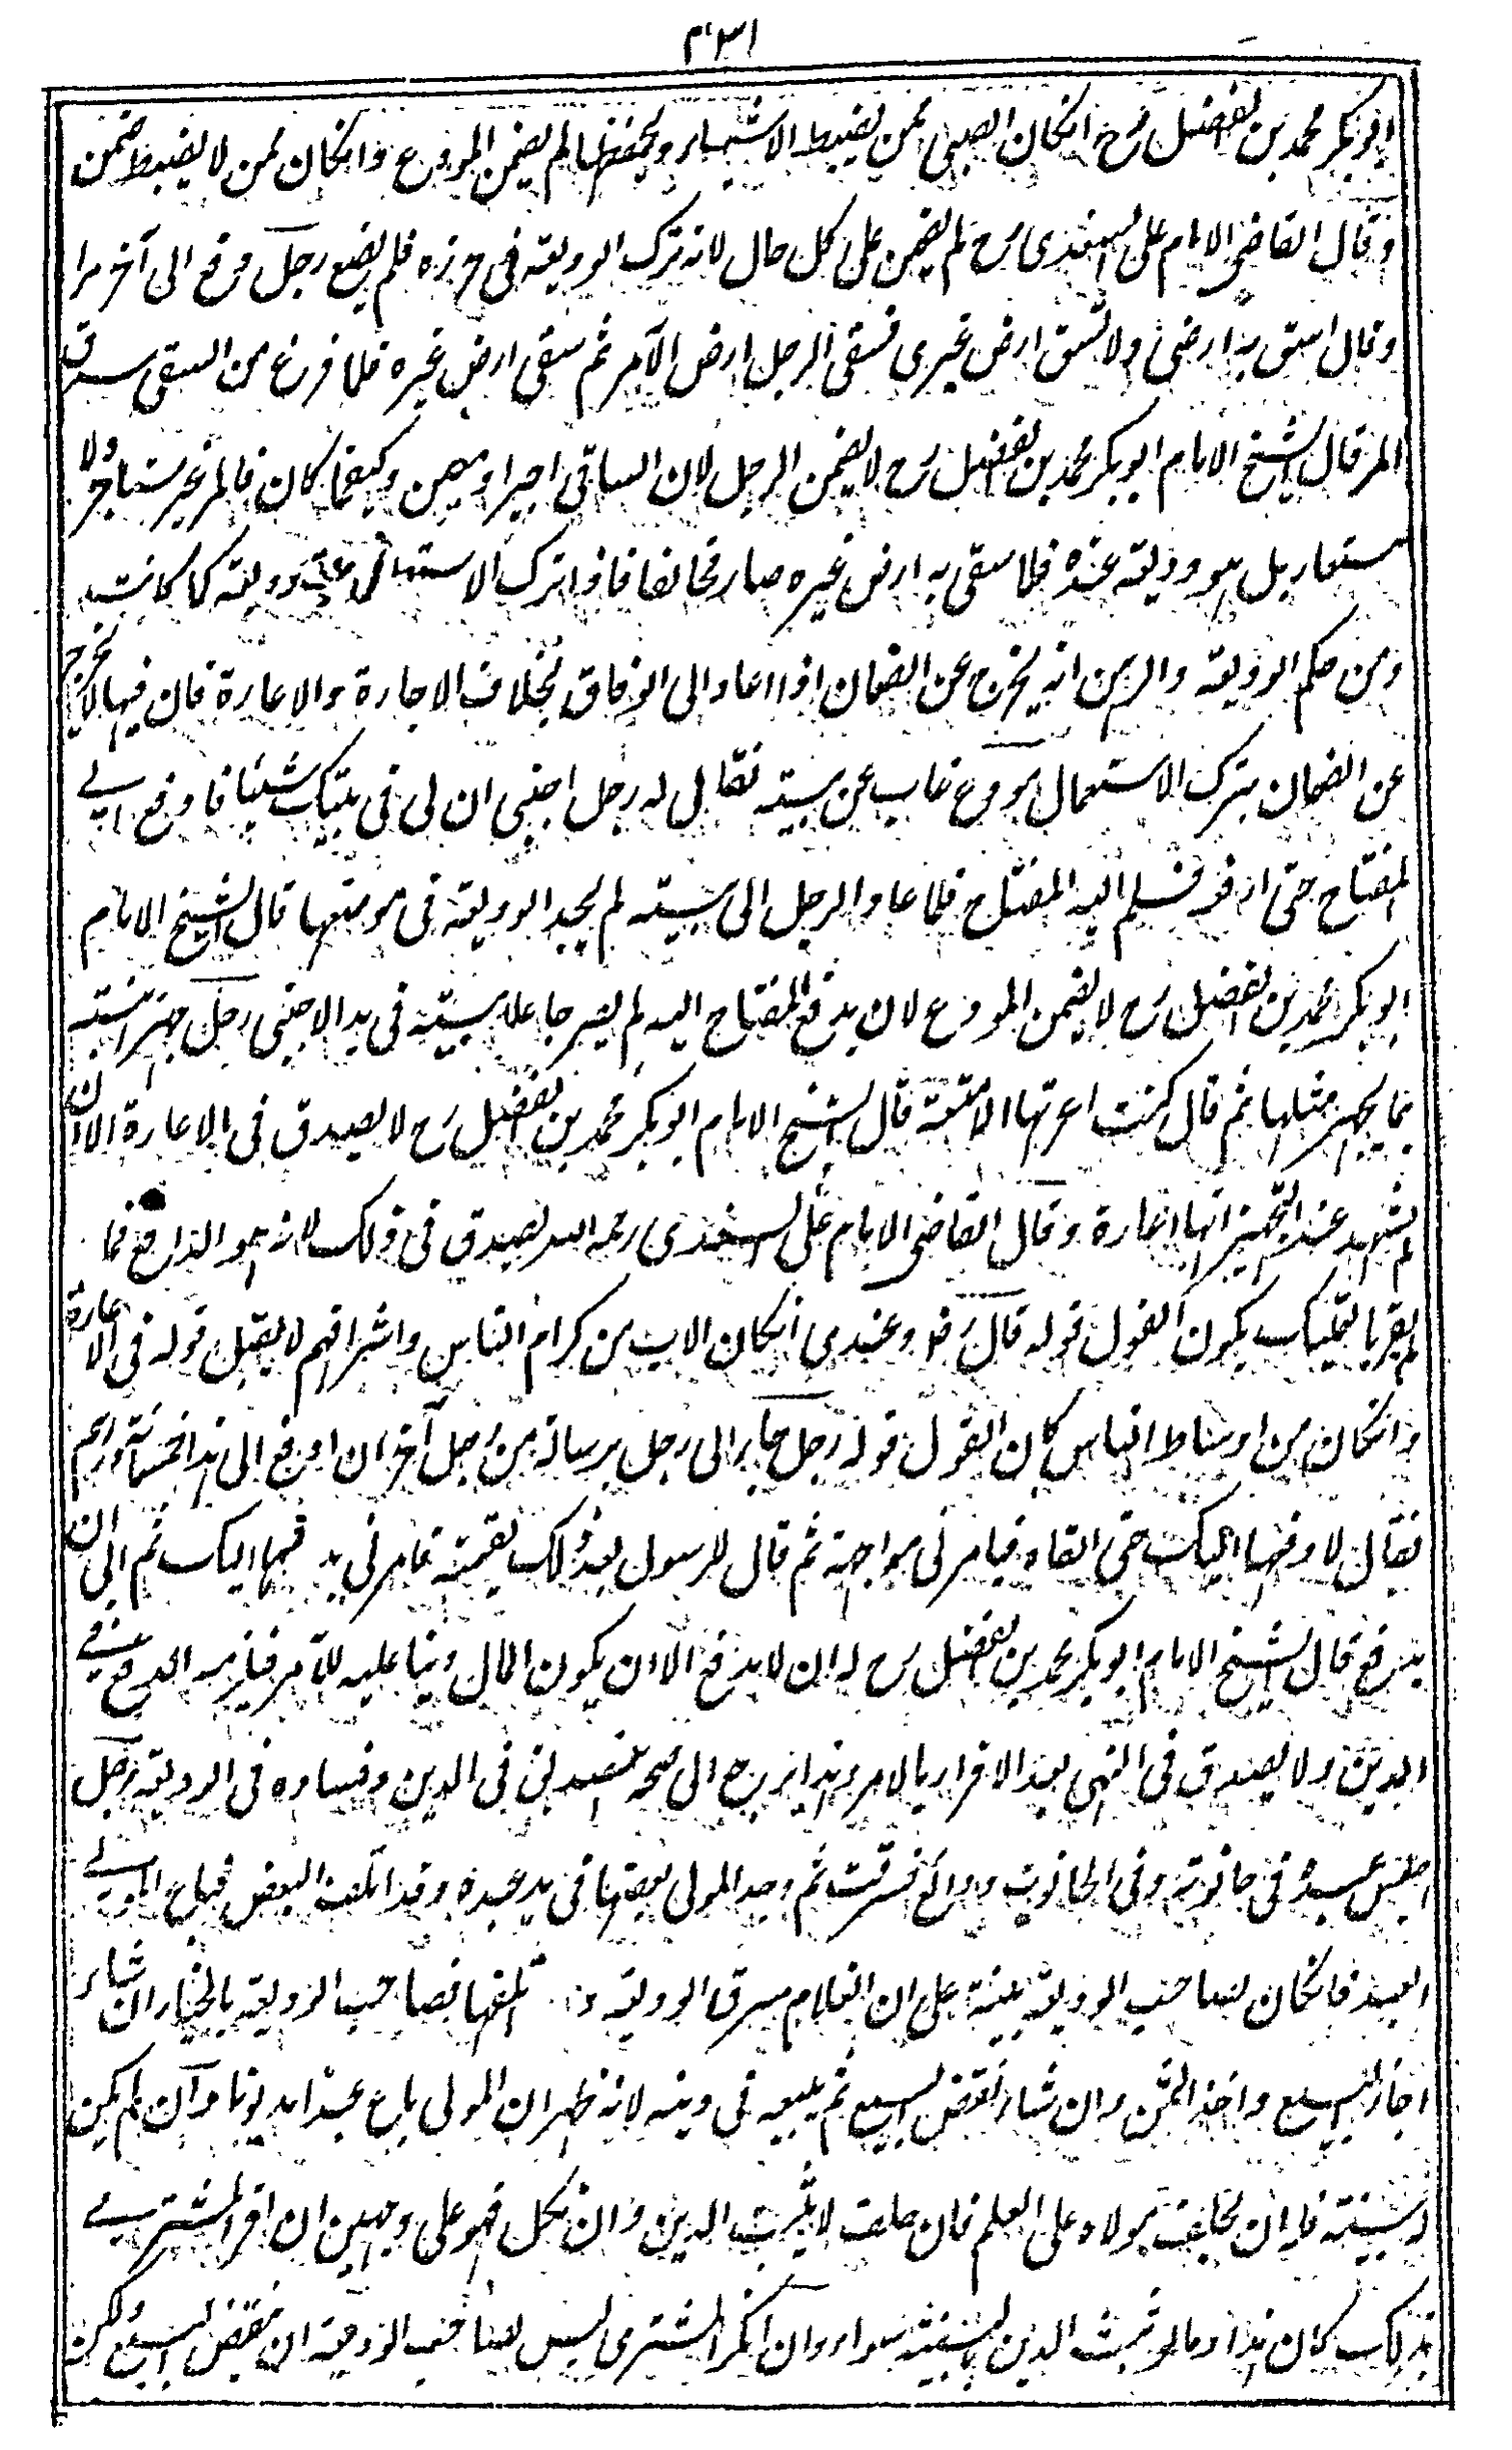 ٤٣١
ابو بكر محمد بن الفضل رح انكان الصبى ممن يضبط الاشياء ويحفظها لم يضمن المودع وانكان ممن لا يضبط ضمن
وقال القاضى الامام على السغدى رح لم يضمن على كل حال لانه ترك الوديعة فى حرزه فلم يضع رجل دفع الى آخر مرا
وقال اسق به ارضى ولا تسق ارض غيرى فسقى الرجل ارض الآمر ثم سقى ارض غيره فلما فرغ من السقى سرق
المر قال الشيخ الامام ابو بكر محمد بن الفضل رح لا يضمن الرجل لان الساقى اجير او معين وكيفما كان فالمر غير مستاجر ولا
مستعار بل هو وديعة عنده فلما سقى به ارض غيره صار مخالفا فاذا ترك الاستعمال عاد وديعة كما كانت
ومن حكم الوديعة والرهن انه يخرج عن الضمان اذا اعاد الى الوفاق بخلاف الاجارة والاعارة فان فيهما لا يخرج
عن الضمان بترك الاستعمال مودع غاب عن بيته فقال له رجل اجنبى ان لى فى بيتك شيئا فادفع الى
المفتاح حتى ارفعه فسلم اليه المفتاح فلما عاد الرجل الى بيته لم يجد الوديعة فى موضعها قال الشيخ الامام
ابو بكر محمد بن الفضل رح لا يضمن المودع لان بدفع المفتاح اليه لم يصر جاعلا بيته فى يد الاجنبى رجل جهز ابنته
بما يجهز مثلها ثم قال كنت اعرتها الامتعة قال الشيخ الامام ابو بكر محمد بن الفضل رح لا يصدق فى الاعارة الا ان
يشهد عند التجهيز انها اعارة وقال القاضى الامام على السغدى رحمه الله يصدق فى ذلك لانه هو الدافع فما
لم يقر بالتمليك يكون القول قوله قال رض وعندى انكان الاب من كرام الناس واشرافهم لا يقبل قوله فى الاعارة
وانكان من اوساط الناس كان القول قوله رجل جاء الى رجل برسالة من رجل آخر ان ادفع الى هذا خمسمائة درهم
فقال لا ادفعها اليك حتى القاه فيامرنى مواجهة ثم قال للرسول بعد ذلك لقيته فامرنى بدفعها اليك ثم ابى ان
يدفع قال الشيخ الامام ابو بكر محمد بن الفضل رح له ان لا يدفع الا ان يكون المال دينا عليه للآمر فيلزمه الدفع فى
الدين ولا يصدق فى النهى بعد الاقرار بالامر وهذا يرجع الى صحة تصديق فى الدين وفساده فى الوديعة رجل
اجلس عبده فى حانوته وفى الحانوت ودائع فسرقت ثم وجد المولى بعضها فى يد عبده وقد اتلف البعض فباع المولى
العبد فانكان لصاحب الوديعة بينة على ان الغلام سرق الوديعة واتلفها فصاحب الوديعة بالخيار ان شاء
اجاز البيع واخذ الثمن وان شاء نقض البيع ثم يبيعه فى دينه لانه ظهر ان المولى باع عبدا مديونا وان لم يكن
له بينة فله ان يحلف مولاه على العلم فان حلف لا يثبت الدين وان نكل فهو على وجهين ان اقر المشترى
بذلك كان هذا وما لو ثبت الدين بالبينة سواء وان انكر المشترى ليس لصاحب الوديعة ان ينقض البيع ولكن